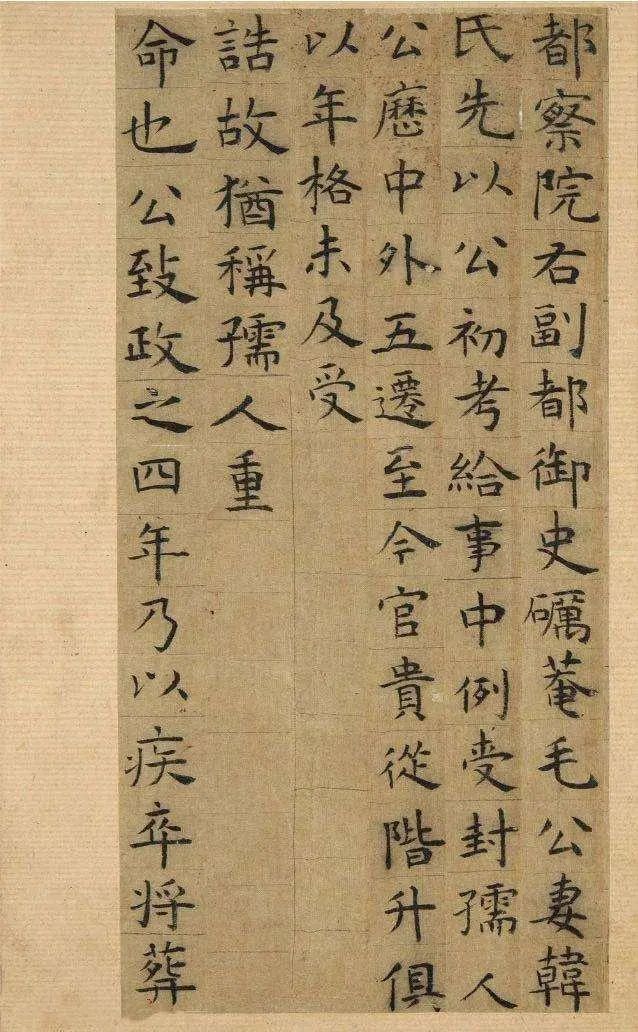 都察院右副都御史礪菴毛公妻韓
氏先以公初考給事中例受封孺人
公歷中外五遷至今官貴從階升俱
以年格未及受
誥故猶稱孺人重
命也公致政之四年乃以疾卒将葬